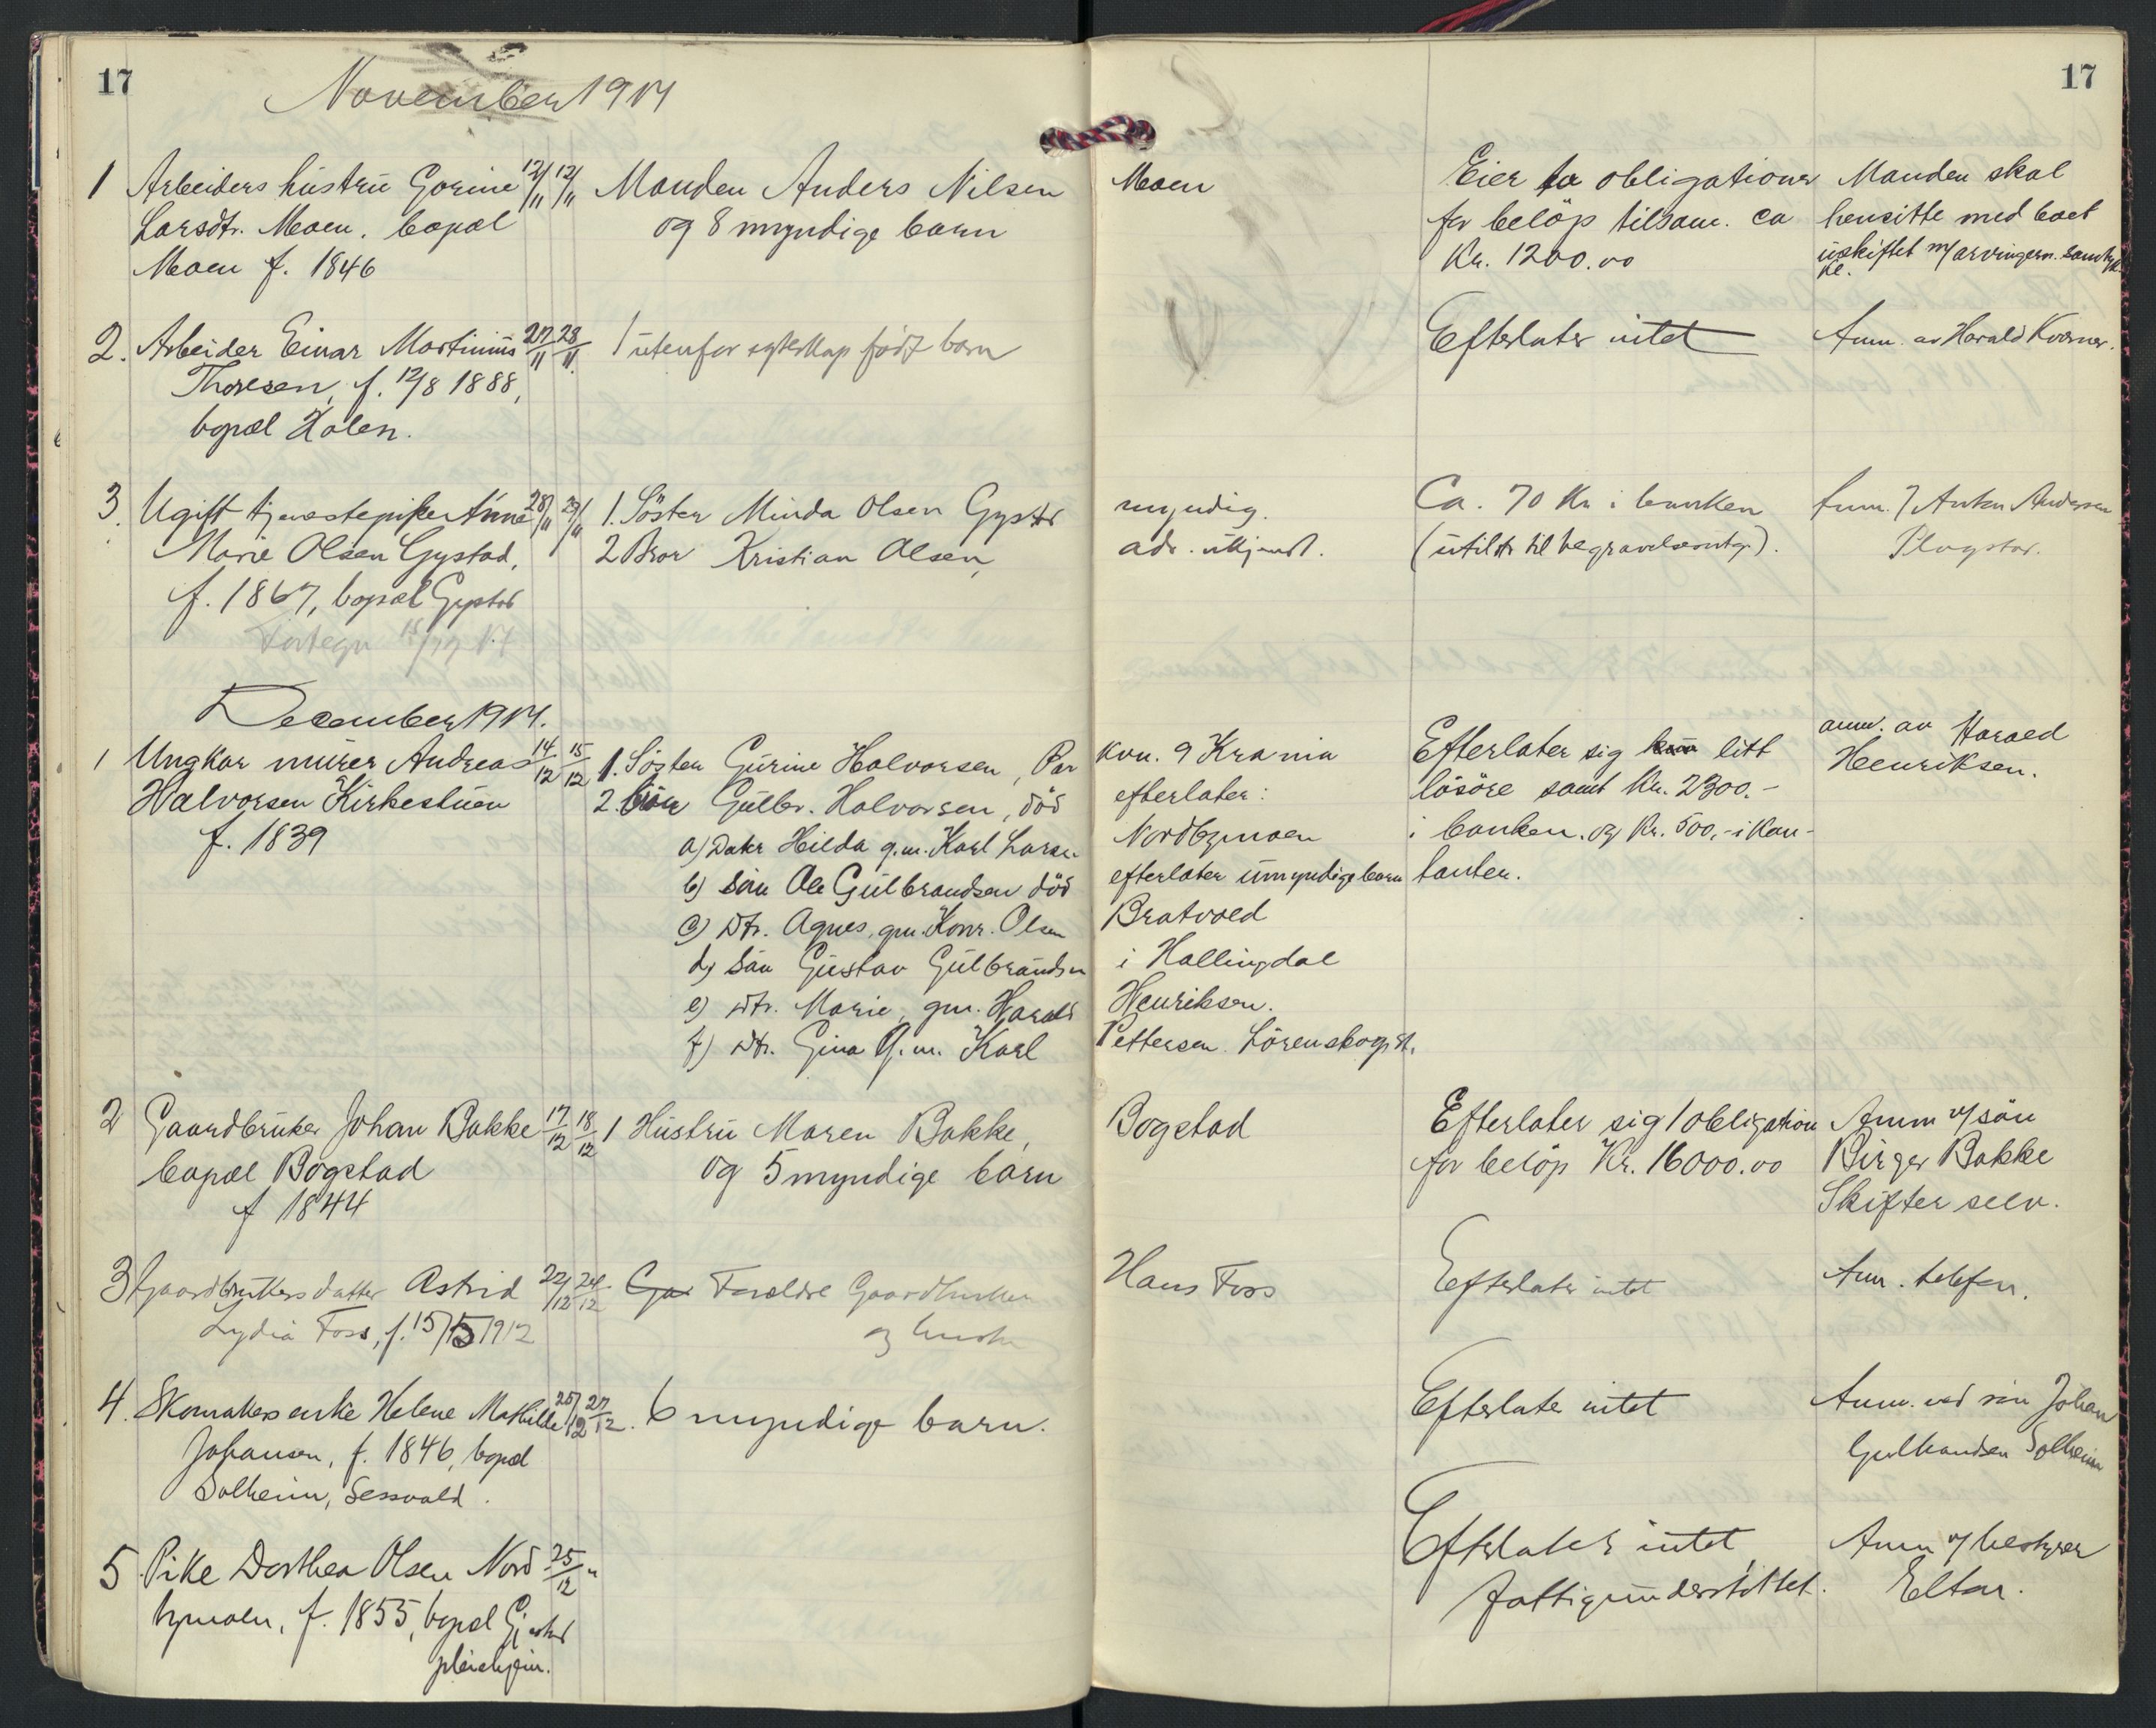 17
17
November 1917
1 Arbeiders hustru Gorine 12/11 12/11 Manden Anders Nilsen Moen Eier to obligationer Manden skal
Larsdtr. Moen. bopæl og 8 myndige barn for beløp tilsam. ca hensitte med boet
Moen f. 1846 Kr. 1200.00 uskiftet m/arvingern. samtyk
ke.
2. Arbeider Einar Martinius 27/11 28/11 1 utenfor egteskap født barn Efterlater intet Anm. av Harald Kværner.
Thoresen, f. 12/8 1888,
bopæl Holen.
3. Ugift tjenestepike Anna 28/11 29/11 1. Söster Minda Olsen Gystad myndig. Ca. 70 Kr i banken Anm. Anton Andersen
Marie Olsen Gystad, 2 Bror Kristian Olsen, adr. ukjendt. (utilstr til begravelsesomkg). Plogstad.
f. 1867, bopæl Gystad
December 1917.
1 Ungkar murer Andreas 14/12 15/12 1. Söster Gurine Halvorsen, Par kvn. 9 Krania Efterlater sig litt anm. av Harald
Halvorsen Kirkestuen 2. Gulbr. Halvorsen, död efterlater: lösöre samt Kr. 2300.- Henriksen.
f. 1839 a) Datr Hilda g.m. Karl Larsen Nordbymoen i banken. og Kr. 500,- i Kon-
b) Sön Ole Gulbrandsen död efterlater umyndige barn tanter.
c) Dtr. Agnes, gm. Konr. Olsen Bratvold
d) Sön Gustav Gulbrandsen i Hallingdal
e) Dtr. Marie, gm. Harald Henriksen.
f) Dtr. Gina G.m. Karl Pettersen Lörenskog st.
2 Gaardbruker Johan Bakke 17/12 18/12 1 Hustru Maren Bakke, Bogstad Efterlater sig 1 obligation Anm v/ sön
bopæl Bogstad og 5 myndige barn for beløp Kr. 16000.00 Birger Bakke
f 1844 Skifter selv.
3 Gaardbrukers datter Astrid 22/12 24/12 Foreldre Gaardbruker Hans Foss Efterlater intet Anm. telefon.
Lydia Foss, f. 15/5 1912 og hustru
4. Skomakers enke Helene Mathilde 25/12 27/12. 6 myndige barn. Efterlater intet Anm. ved sön Johan
Johansen, f. 1846, bopæl Gulbrandsen Solheim
Solheim, Sessvold.
5 Pike Dorthea Olsen Nord 25/12 " Efterlater intet, Anm v/ bestyrer
bymoen, f. 1855, bopæl Gjestad fattigunderstöttet. Elton.
pleiehjem.